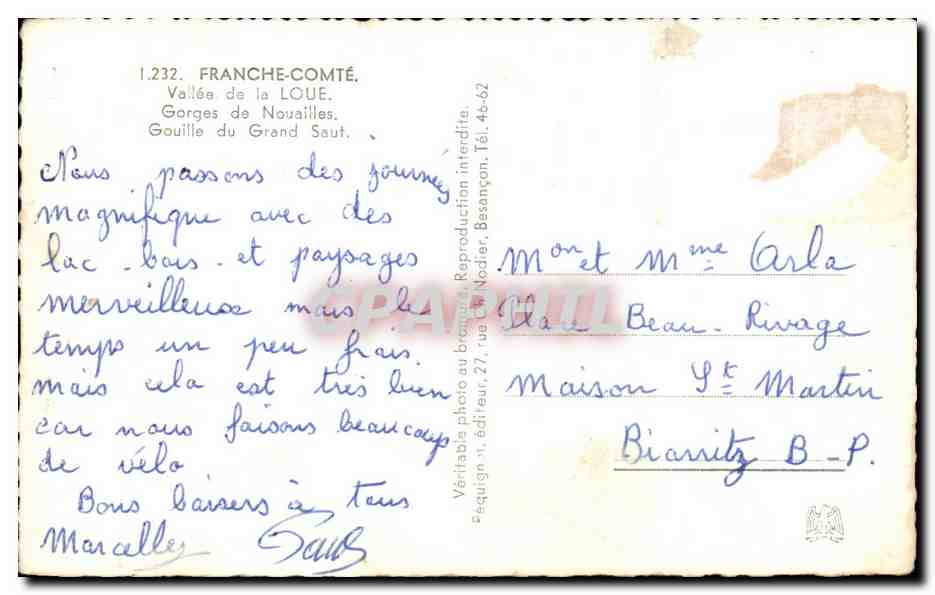 1.232. FRANCHE-COMTÉ.
Vallée de la LOUE.
Gorges de Nouailles.
Gouille du Grand Saut.
Nous passons des journées
magnifique avec des
lac - bois - et paysages
merveilleux mais le
temps un peu frais.
mais cela est très bien
car nous faisons beaucoup
de vélo
Bons baisers à tous
Marcelle
Véritable photo au bromure. Reproduction interdite.
éditeur, 27, rue Ch. Nodier, Besançon, Tél. 46-62
Mon et Mme Arla
Place Beau-Rivage
Maison St Martin
Biarritz B-P.
CPAPHIL